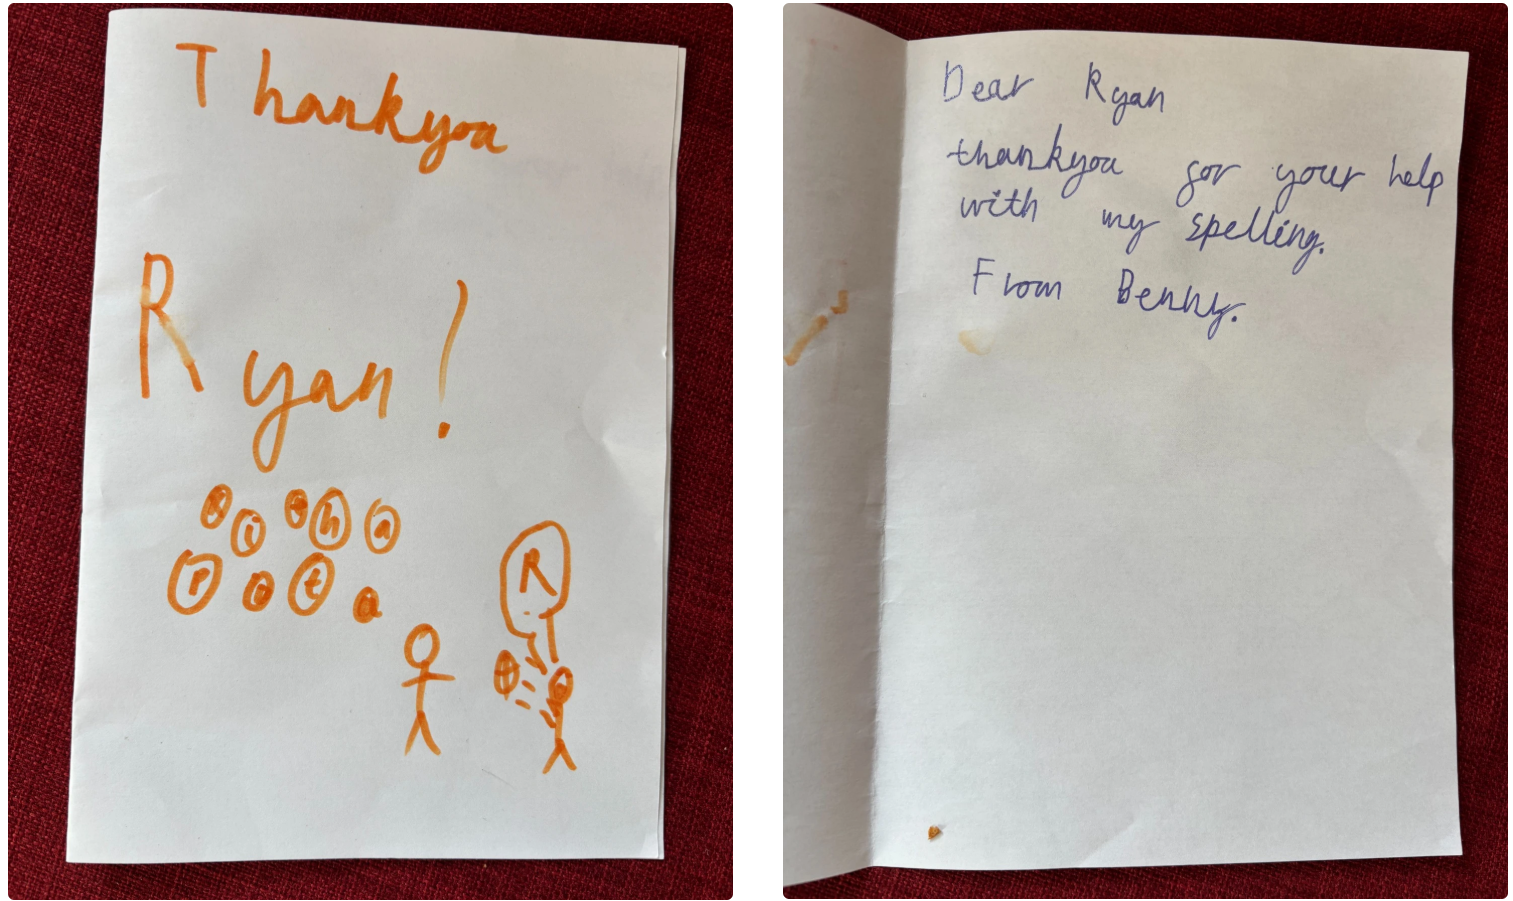 Thankyou
Ryan!
i t h a
P o t a
R
Dear Ryan
thankyou for your help
with my spelling.
From Benny.